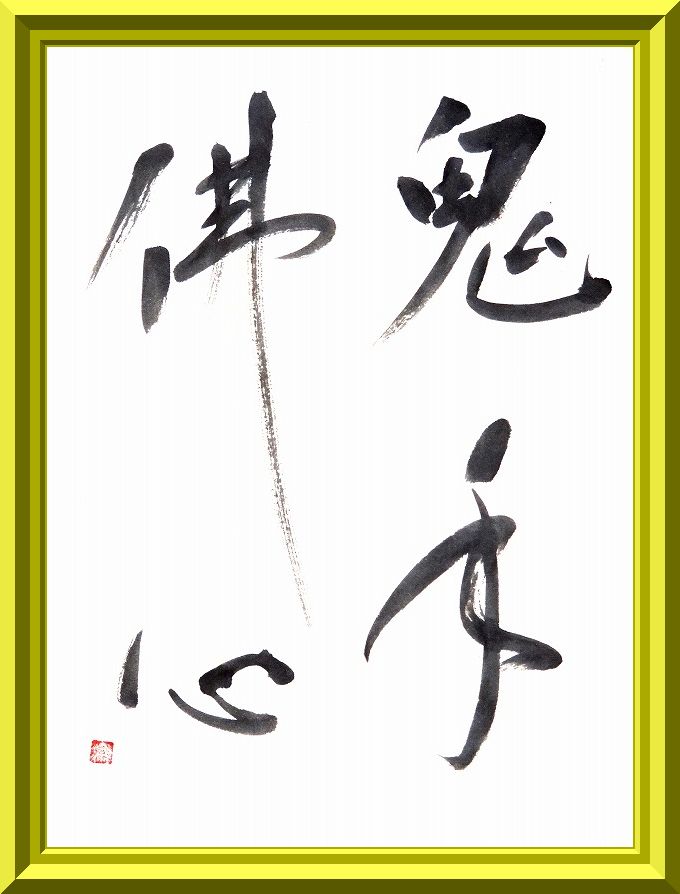 鬼手
佛心